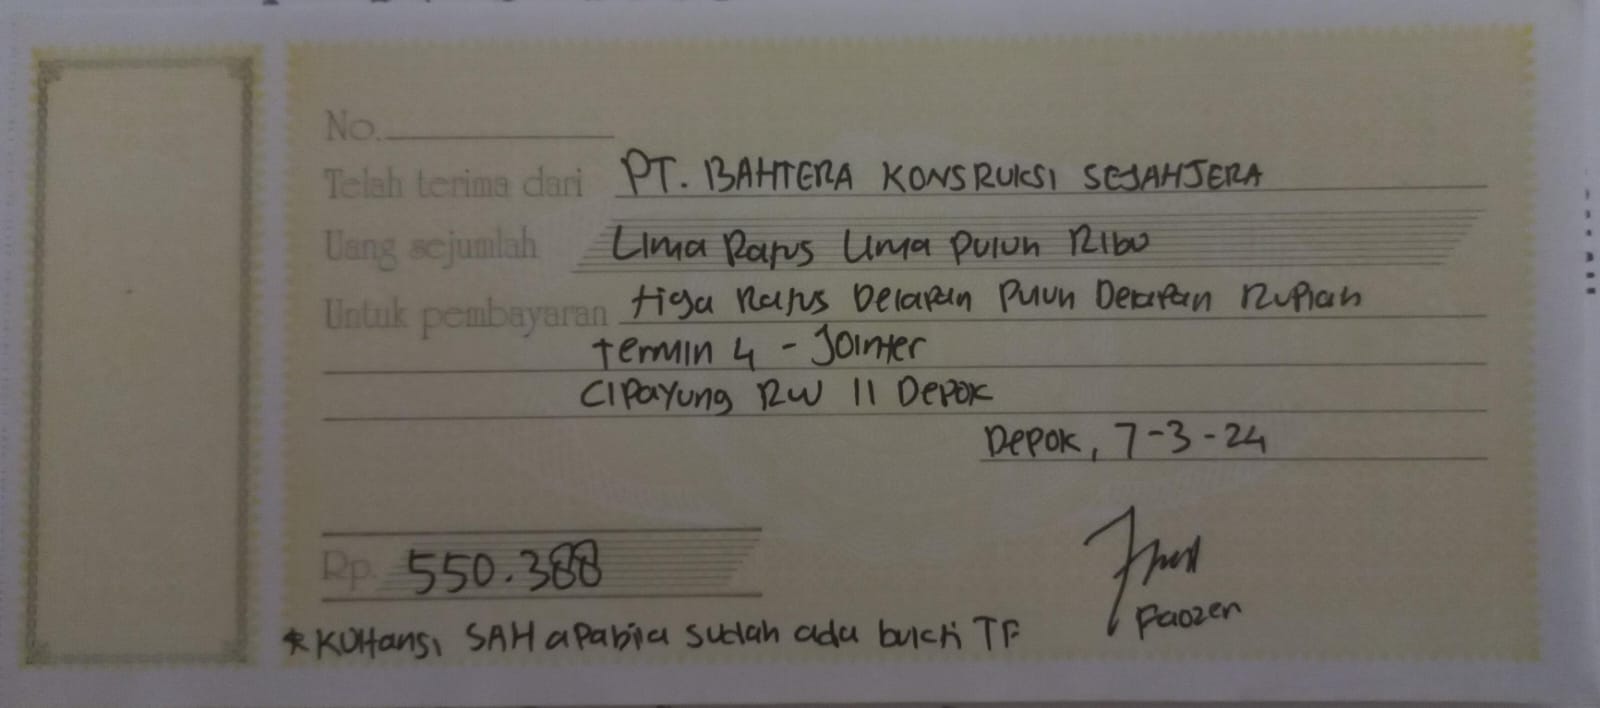 No.
Telah terima dari PT. BAHTERA KONSRUKSI SEJAHTERA
Uang sejumlah Lima Ratus Lima Puluh Ribu
Untuk pembayaran tiga Ratus Delapan Puluh Delapan Rupiah
termin 4 - Jointer
Cipayung RW 11 Depok
Depok, 7-3-24
Rp. 550.388
Paozen
*Kuitansi SAH apabila sudah ada bukti TF